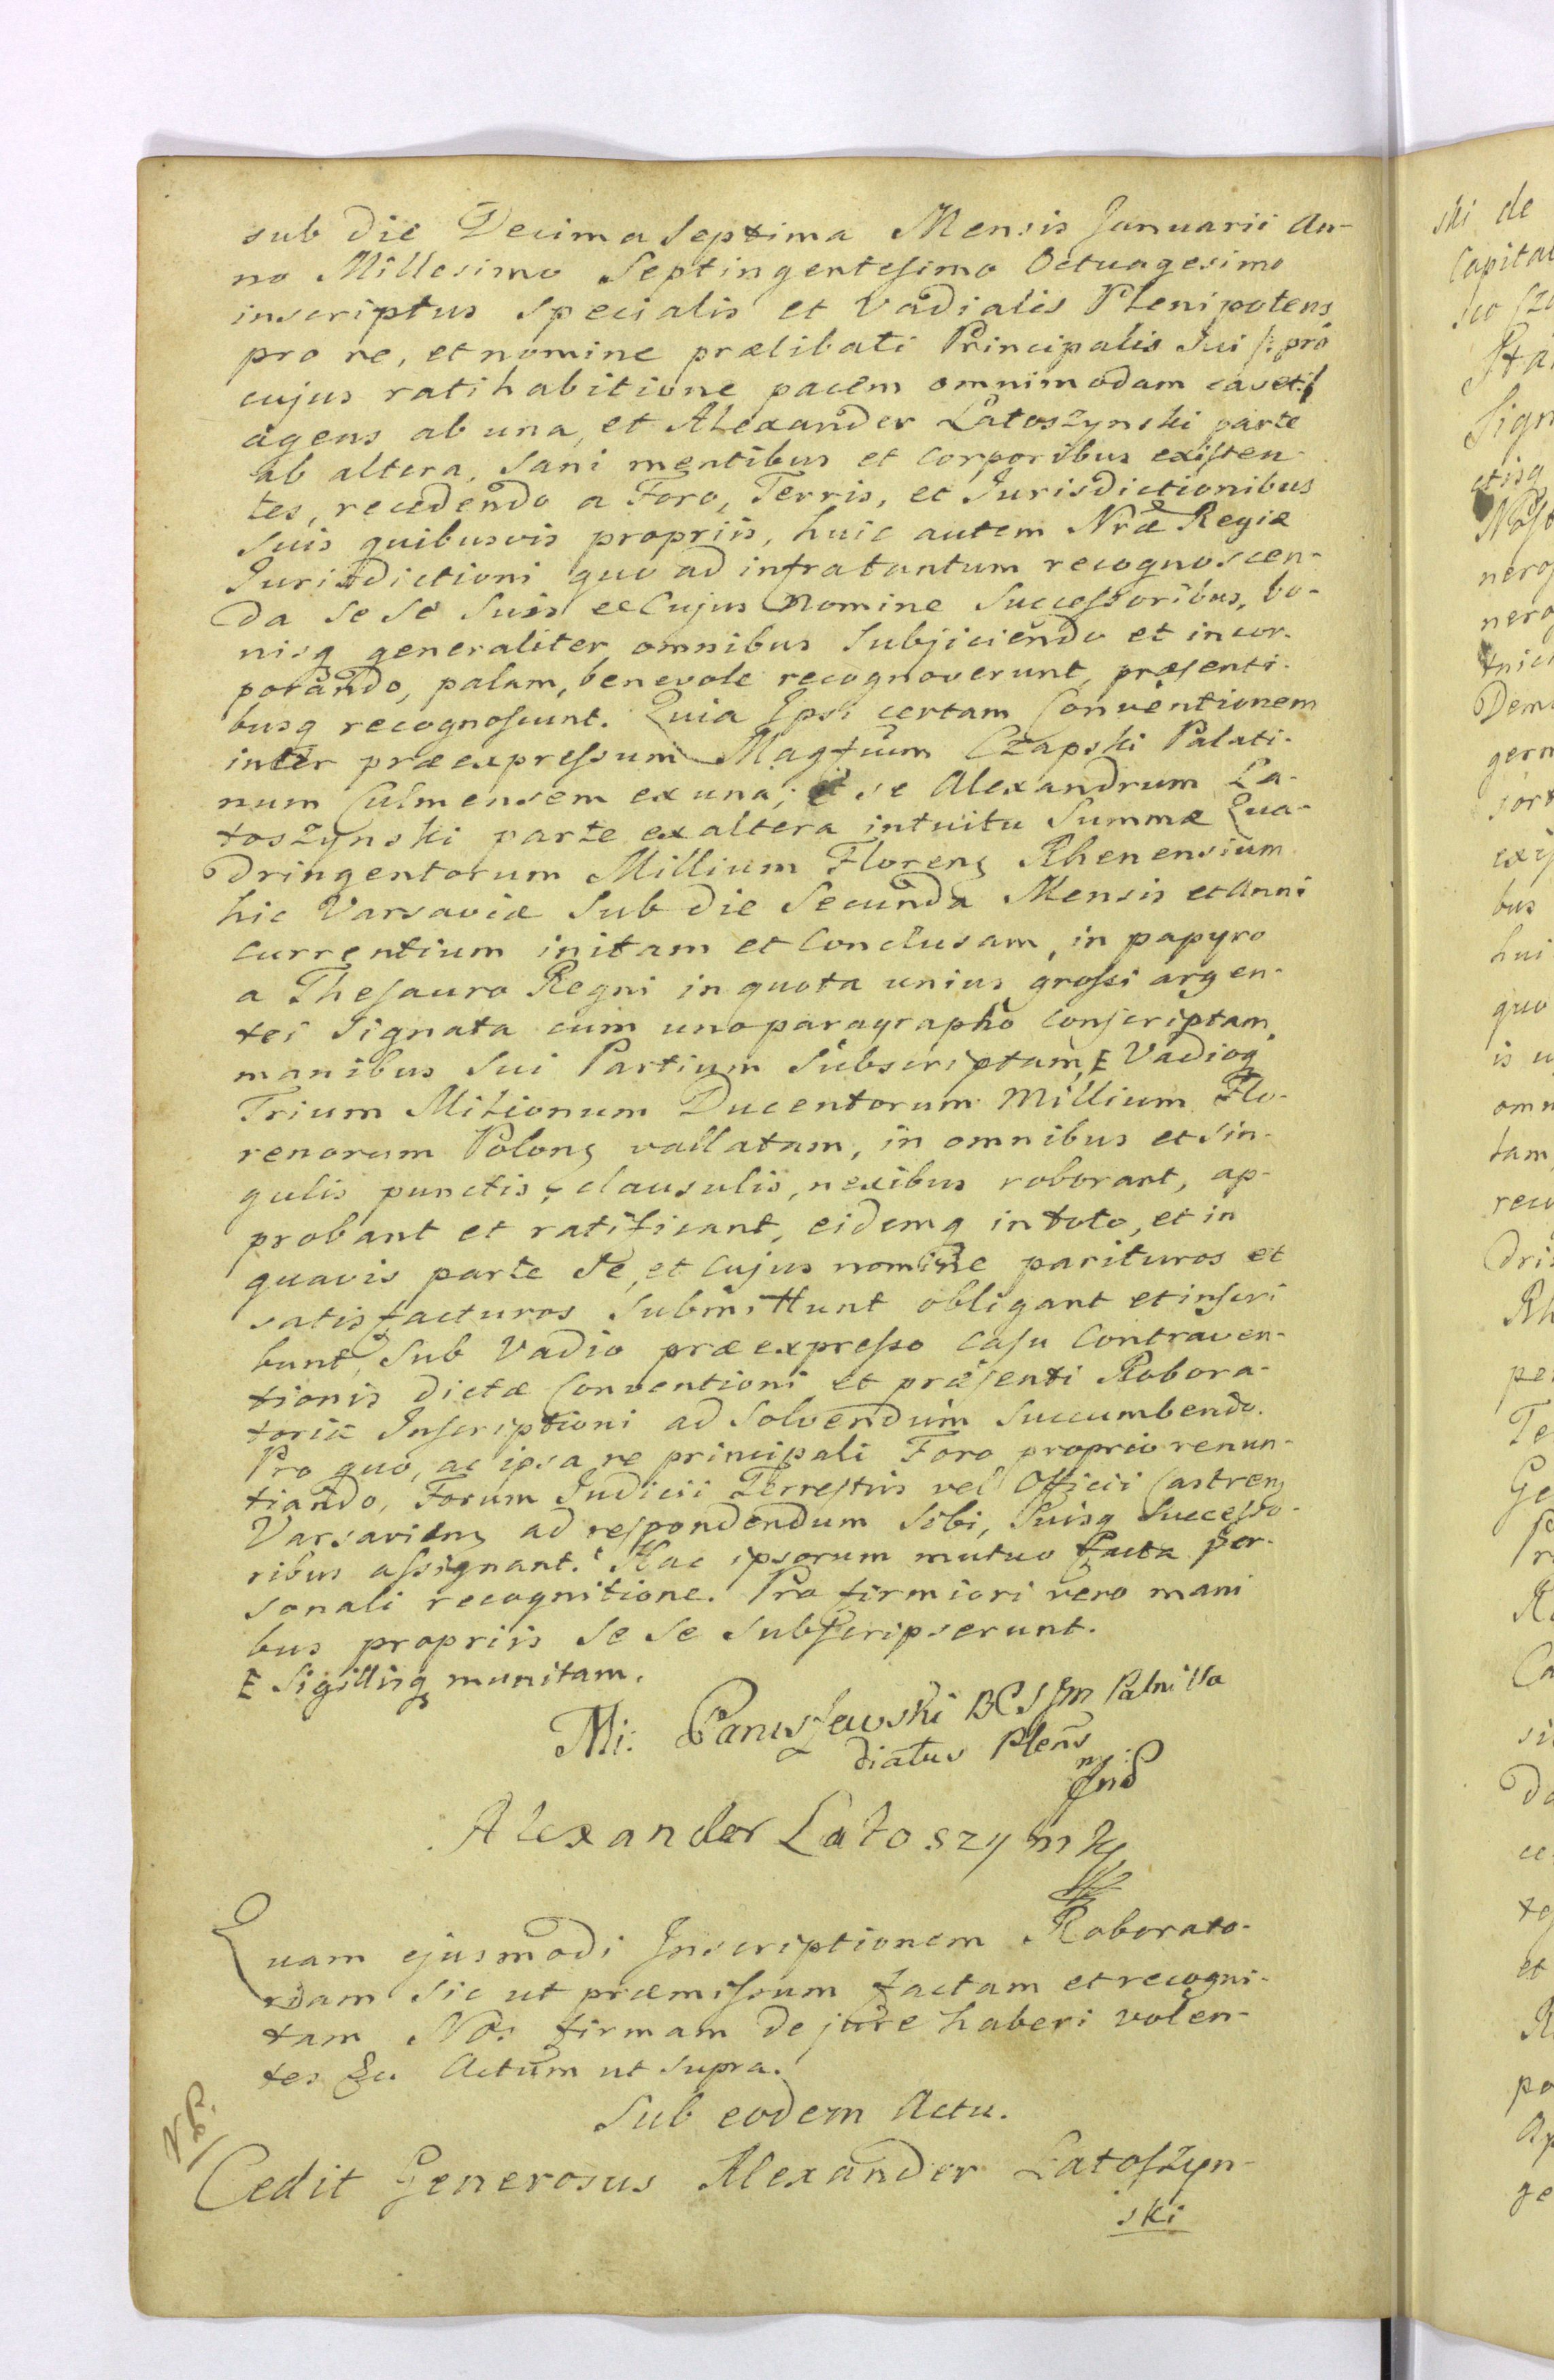 sub die Decima Septima Mensis Januarii An-
no Millesimo Septingentesimo Octuagesimo
inscriptus specialis et Vadialis Plenipotens
pro re, et nomine prælibati Principalis Sui /: pro
cujus ratihabitione pacem omnimodam cavet :/
agens ab una, et Alexander Latoszynski parte
ab altera, Sani mentibus et corporibus existen-
tes, recedendo a Foro, Terris, et Jurisdictionibus
Suis quibusvis propriis, huic autem Nræ Regiæ
Jurisdictioni quo ad infratantum recognoscen-
da Se Se Suis et Cujus Nomine Successoribus, bo-
nisq generaliter omnibus Subjiciendo et incor-
porando, palam, benevole recognoverunt, præsenti-
busq recognoscunt. Quia Ipsi certam Conventionem
inter præexpressum Magfium Czapski Palati-
num Culmensem ex una, et se Alexandrum La-
toszynski parte ex altera intuitu Summæ Qua-
dringentorum Millium Floreng Rhenensium
hic Varsaviæ Sub die Secunda Mensis et Anni
currentium initam et Conclusam, in papyro
a Thesauro Regni in quota unius grossi argen-
tei Signata cum uno paragrapho conscriptam,
manibus Sui Partium Subscriptam, E Vadioq
Trium Milionum Ducentorum Millium Flo-
renorum Polong vallatam, in omnibus et sin-
gulis punctis, clausulis, nexibus roborant, ap-
probant et ratificant, eidemq in toto, et in
quavis parte Se, et Cujus nomine parituros et
satisfacturos Submittunt obligant et inscri
bunt, Sub Vadio præexpresso casu Contraven-
tionis dictæ Conventioni et præsenti Robora-
toriæ Inscriptioni ad Solvendum Succumbendo.
Pro quo, ac ipsa re principali Foro proprio renun-
tiando, Forum Judicii Terrestris vel Officii Castreng
Varsavieng ad respondendum Sibi, Suisq Successo-
ribus assignant. Hac ipsorum mutuo facta per-
sonali recognitione. Pro firmiori vero mani
bus propriis Se Se Subscripserunt.
E Sigillisq munitam.
Mi: Paniszewski
diatus Plens
Alexander Latoszynski
Quam ejusmodi Inscriptionem Roborato-
riam Sic ut præmissum factam et recogni-
tam Nos firmam de jure haberi volen-
tes &c. Actum ut supra.
Sub eodem Actu.
Cedit Generosus Alexander Latoszyn-
ski
ski de